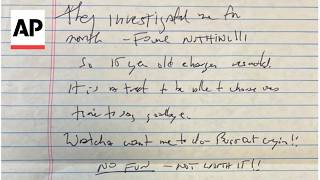 AP
They investigated me for
month - Found NOTHING!!!
So 15 year old charges resulted.
It is a treat to be able to choose ones
time to say goodbye.
Watcha want me to do - Burst out cryin!!
NO FUN - NOT WORTH IT!!